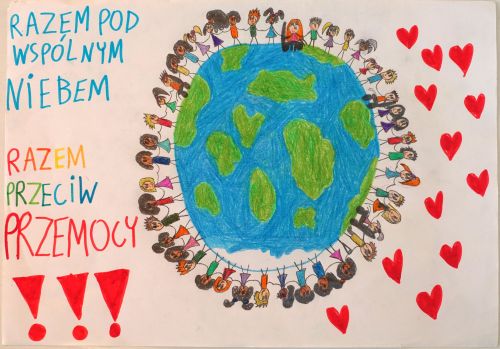 RAZEM POD
WSPÓLNYM
NIEBEM
RAZEM
PRZECIW
PRZEMOCY
!!!